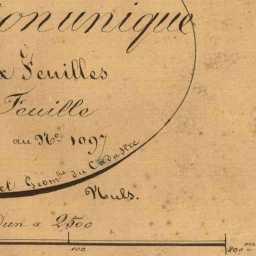 ion unique
x Feuilles
Feuille
au No. 1097
el Geom.tre du Cadastre
Nuls.
d'un a 2500
100
200